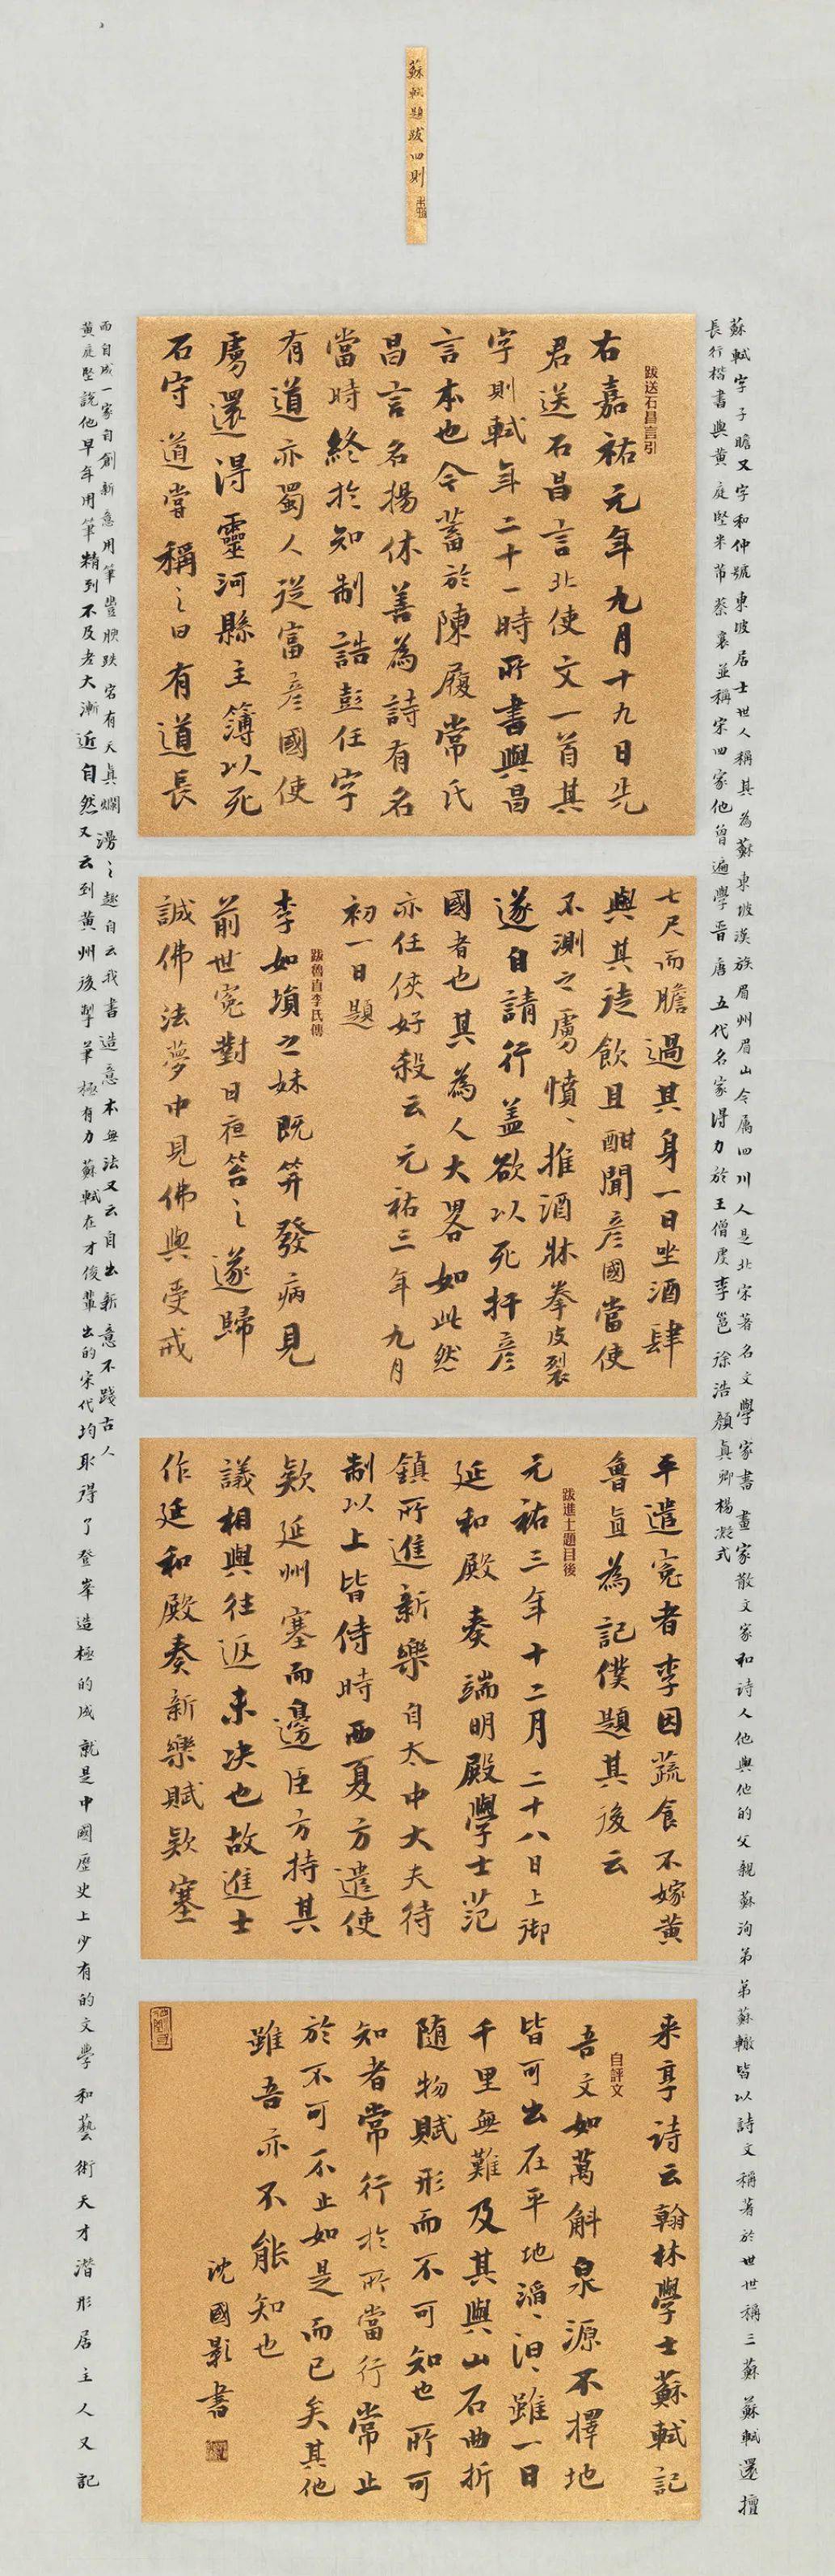 蘇軾題跋四則
蘇軾字子瞻又字和仲號東坡居士世人稱其為蘇東坡漢族眉州眉山今屬四川人是北宋著名文學家書畫家散文家和詩人他與他的父親蘇洵弟弟蘇轍皆以詩文稱著於世世稱三蘇蘇軾還擅
長行楷書與黃庭堅米芾蔡襄並稱宋四家他曾遍學晉唐五代名家得力於王僧虔李邕徐浩顏真卿楊凝式
跋送石昌言引
右嘉祐元年九月十九日先
君送石昌言北使文一首其
字則軾年二十一時所書與昌
言本也今蓄於陳履常氏
昌言名揚休善為詩有名
當時終於知制誥彭任字
有道亦蜀人從富彥國使
虜還得靈河縣主簿以死
石守道嘗稱之曰有道長
七尺而膽過其身一日坐酒肆
與其徒飲且酣聞彥國當使
不測之虜憤憤推酒牀拳皮裂
遂自請行蓋欲以死扞彥
國者也其為人大畧如此然
亦任俠好殺云元祐三年九月
初一日題
跋魯直李氏傳
李如塤之妹既笄發病見
前世冤對日夜笞之遂歸
誠佛法夢中見佛與受戒
平遣冤者李因蔬食不嫁黃
魯直為記僕題其後云
跋進士題目後
元祐三年十二月二十八日上御
延和殿奏端明殿學士范
鎮所進新樂自太中大夫待
制以上皆侍時西夏方遣使
款延州塞而邊臣方持其
議相與往返未決也故進士
作延和殿奏新樂賦款塞
来享诗云翰林學士蘇軾記
自評文
吾文如萬斛泉源不擇地
皆可出在平地滔滔汩汩雖一日
千里無難及其與山石曲折
隨物賦形而不可知也所可
知者常行於所當行常止
於不可不止如是而已矣其他
雖吾亦不能知也
沈國影書
而自成一家自創新意用筆豐腴跌宕有天真爛漫之趣自云我書造意本無法又云自出新意不踐古人
黃庭堅說他早年用筆精到不及老大漸近自然又云到黃州後掣筆極有力蘇軾在才俊輩出的宋代均取得了登峯造極的成就是中國歷史上少有的文學和藝術天才潛形居主人又記